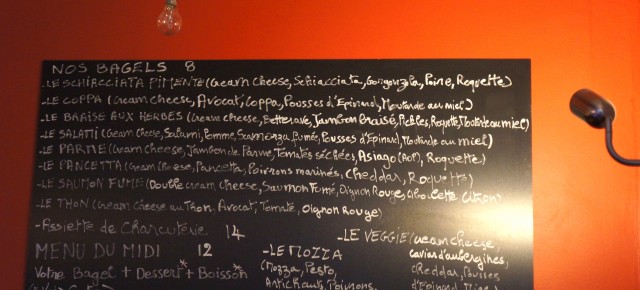 NOS BAGELS 8
-LE SCHIACCIATA PIMENTÉ (Cream Cheese, Schiacciata, Gorgonzola, Poire, Roquette)
-LE COPPA (Cream Cheese, Avocat, Coppa, Pousses d'Epinard, Moutarde au miel)
-LE BRAISÉ AUX HERBES (Cream cheese, Betterave, Jambon Braisé, Pickles, Roquette, Moutarde au miel)
-LE SALAMI (Cream Cheese, Salami, Pomme, Scamorza Fumée, Pousses d'Epinard, Moutarde au miel)
-LE PARME (Cream Cheese, Jambon de Parme, Tomates séchées, Asiago (AOP), Roquette)
-LE PANCETTA (Cream Cheese, Pancetta, Poivrons marinés, cheddar, Roquette)
-LE SAUMON FUMÉ (Double cream Cheese, Saumon Fumé, Oignon Rouge, Ciboulette Citron)
-LE THON (Cream Cheese au Thon, Avocat, Tomate, Oignon Rouge)
-Assiette de Charcuterie 14
MENU DU MIDI 12
Votre Bagel + Dessert* + Boisson*
-LE MOZZA
(Mozza, Pesto,
Artichauts, Poivrons,
-LE VEGGIE (Cream cheese,
caviar d'aubergines,
cheddar, Pousses